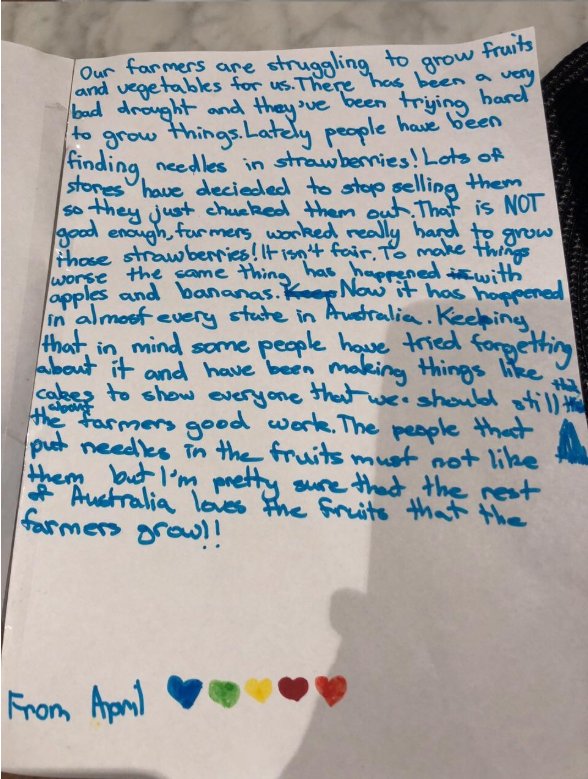 Our farmers are struggling to grow fruits
and vegetables for us. There has been a very
bad drought and they've been trying hard
to grow things. Lately people have been
finding needles in strawberries! Lots of
stores have decieded to stop selling them
so they just chucked them out. That is NOT
good enough, farmers worked really hard to grow
those strawberries! It isn't fair. To make things
worse the same thing has happened with
apples and bananas. Now it has happened
in almost every state in Australia. Keeping
that in mind some people have tried forgetting
about it and have been making things like
cakes to show everyone that we should still
about the farmers good work. The people that
put needles in the fruits must not like
them but I'm pretty sure that the rest
of Australia loves the fruits that the
farmers grow!!
From April